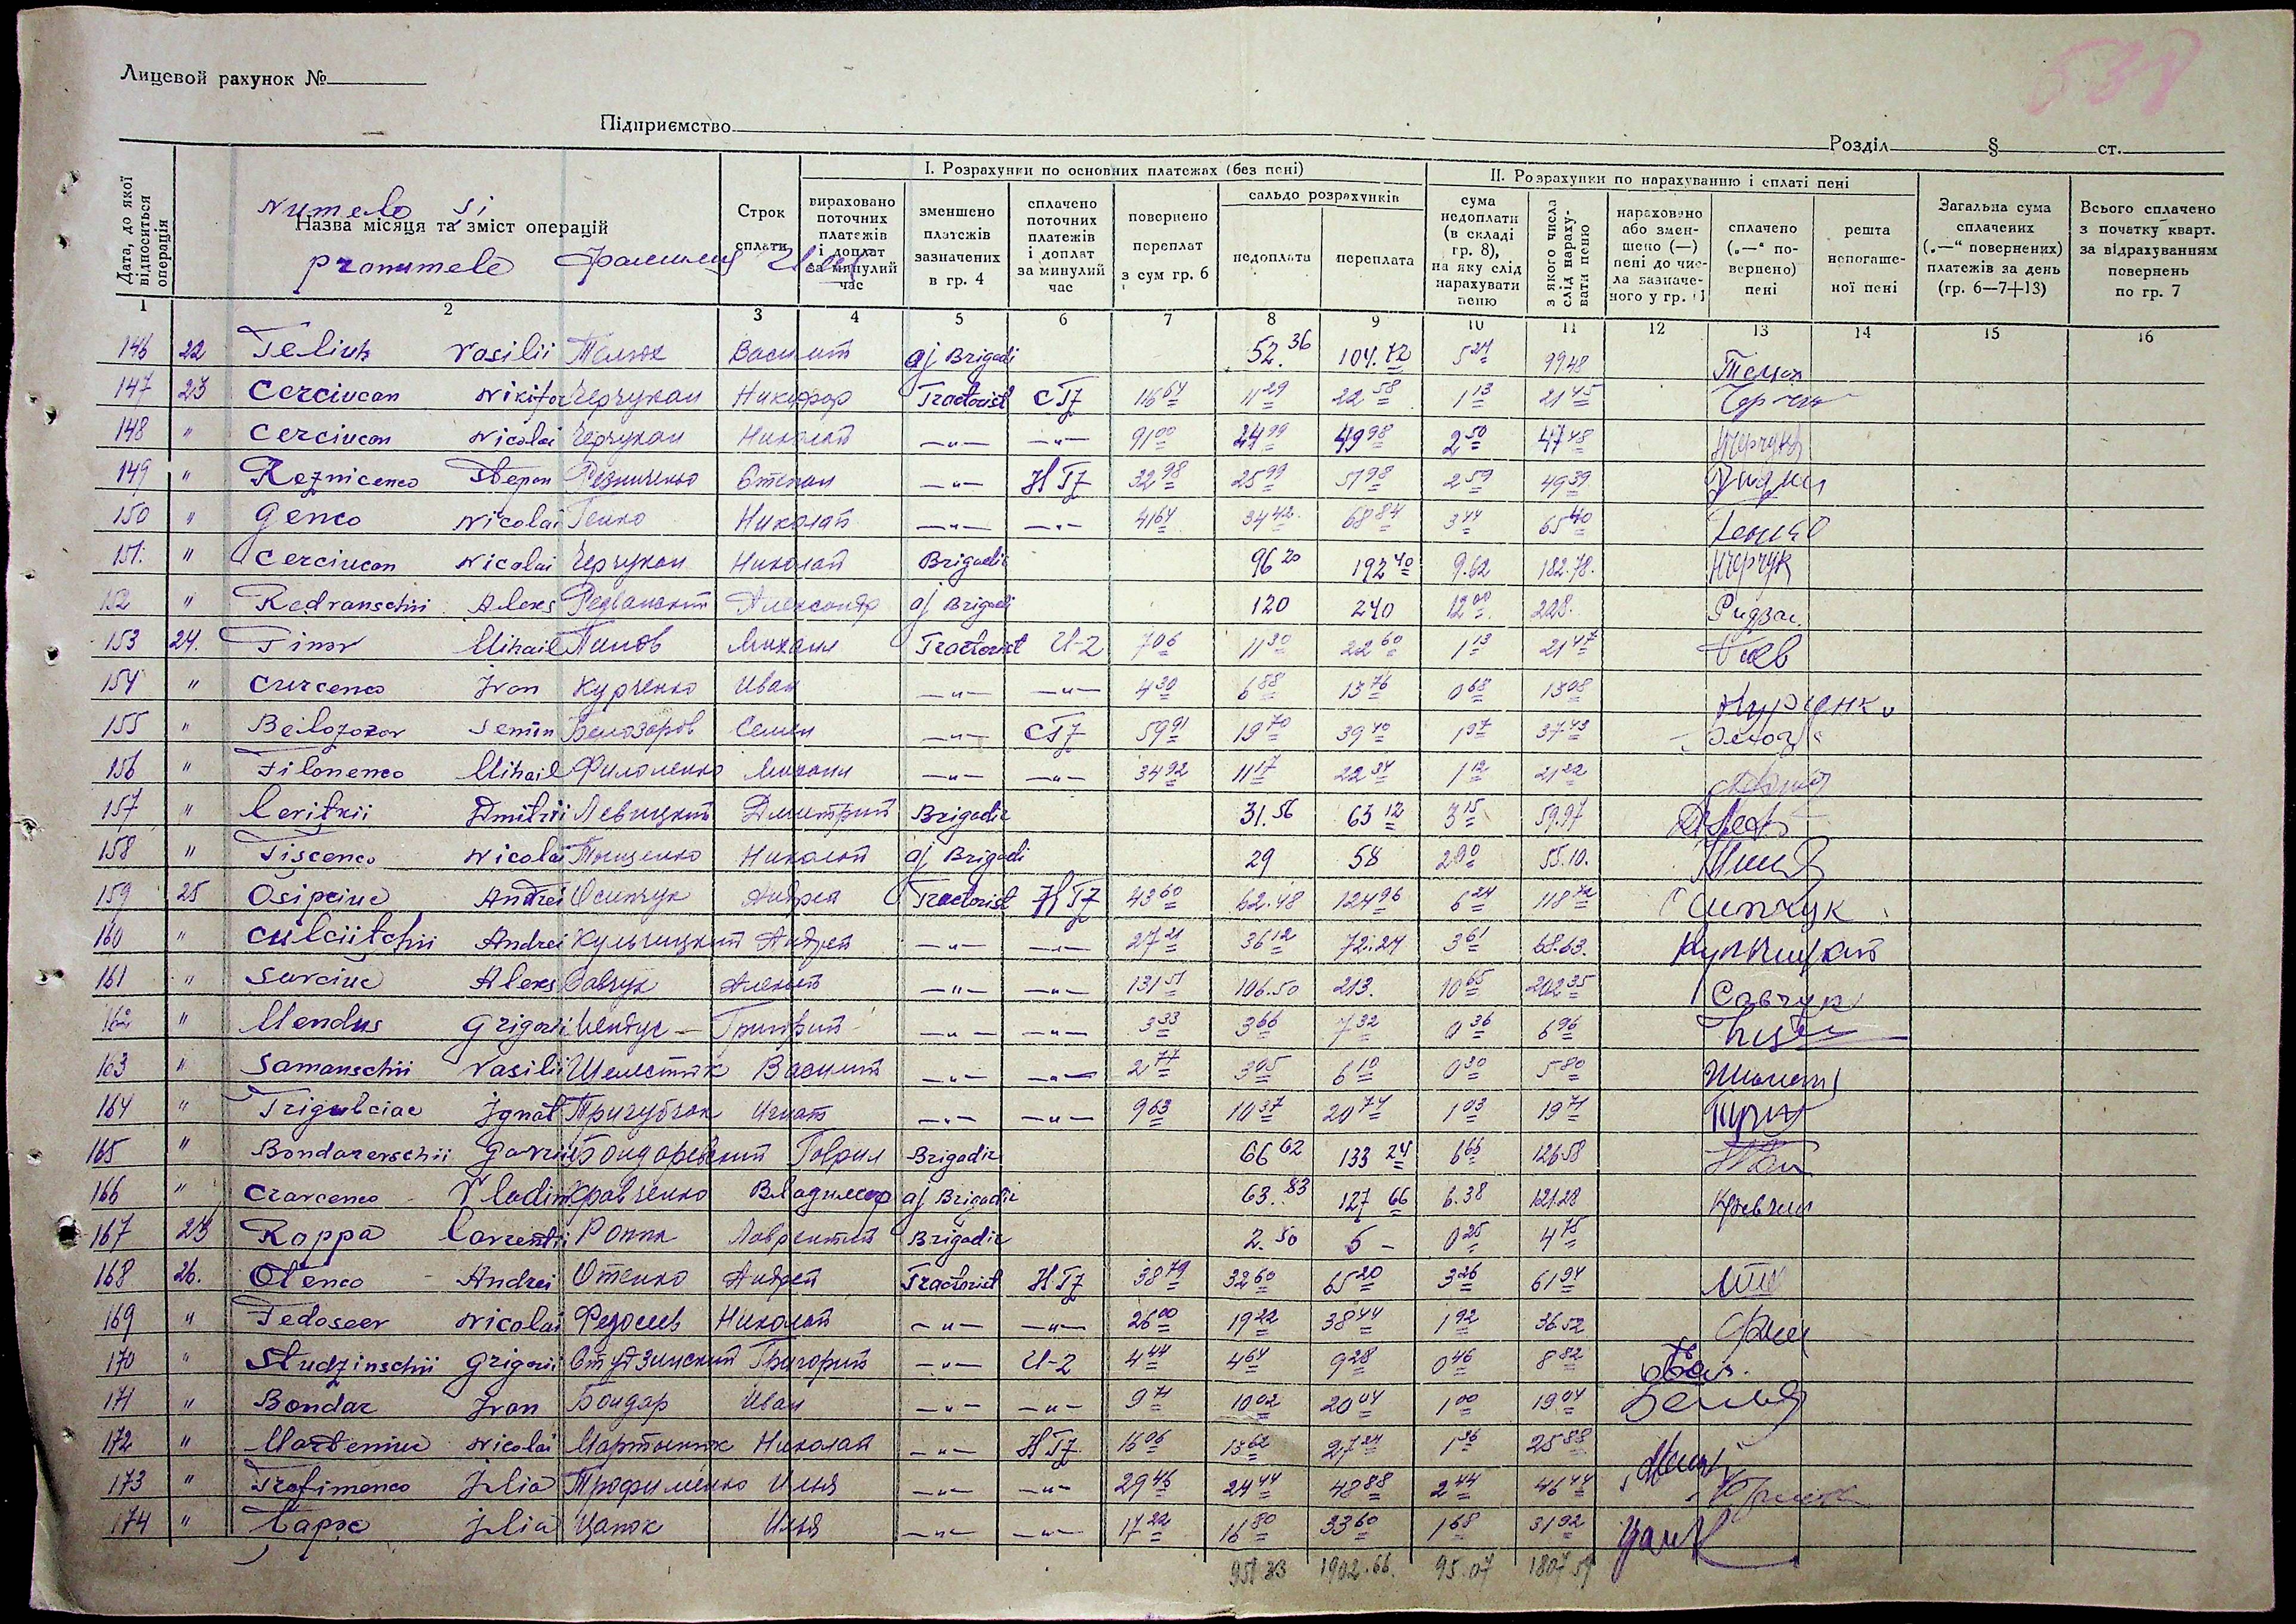 538
Лицевой рахунок №
Підприємство
Розділ § ст.
Дата, до якої відноситься операція
Numele si
Назва місяця та зміст операцій
pronumele Фамилия
Строк сплати
I. Розрахунки по основних платежах (без пені)
вираховано поточних платежів і доплат за минулий час
зменшено платежів зазначених в гр. 4
сплачено поточних платежів і доплат за минулий час
повернено переплат з сум гр. 6
сальдо розрахунків
недоплати
переплата
II. Розрахунки по нарахуванню і сплаті пені
сума недоплати (в складі гр. 8), на яку слід нарахувати пеню
з якого числа слід нараху-вати пеню
нараховано або змен-шено (—) пені до чис-ла зазначе-ного у гр. 11
сплачено („—“ по-вернено) пені
решта непогаше-ної пені
Загальна сума сплачених („—“ повернених) платежів за день (гр. 6—7+13)
Всього сплачено з початку кварт. за відрахуванням повернень по гр. 7
1 2 3 4 5 6 7 8 9 10 11 12 13 14 15 16
146 22 Teliuk Vasilii Телюк Василит aj Brigadi 52.36 104.72 5 24 99 48
147 23 Cerciucan Nikifor Черчукан Никифор Tractorist СТЗ 116 64 11 29 22 58 1 13 21 45
148 " Cerciucan Nicolai Черчукан Николай —"— —"— 91 00 24 99 49 98 2 50 47 48
149 " Reznicenco Stepan Резниченко Степан —"— НТЗ 32 98 25 99 51 98 2 59 49 39
150 " Genco Nicolai Генко Николай —"— —"— 41 64 34 42 68 84 3 44 65 40
151. " Cerciucan Nicolai Черчукан Николай Brigadir 96 20 192 40 9.62 182.78.
152 " Redvanschii Alexs Редванский Александр aj Brigadi 120 240 12 00 228.
153 24. Tinov Mihail Михаил Tractorist У-2 7 06 11 30 22 60 1 13 21 47
154 " Curcenco Ivan Курченко Иван —"— —"— 4 30 6 88 13 76 0 68 13 08 Курченко
155 " Belozorov Semen Белозоров Семен —"— СТЗ 59 91 19 70 39 40 1 97 37 43
156 " Filonenco Mihail Филоненко Михаил —"— —"— 34 92 11 17 22 34 1 12 21 22
157 " Levitkii Dmitrii Левицкий Дмитрий Brigadir 31.56 63 12 3 15 59.97
158 " Tiscenco Nicolai Тищенко Николай aj Brigadi 29 58 2 90 55.10.
159 25 Osipciuc Andrei Осипчук Андрей Tractorist НТЗ 43 60 62.48 124 96 6 24 118 72
160 " Culciitchii Andrei Кульчицкий Андрей —"— —"— 27 21 36 12 72.24 3 61 68.63. Кульчицкий
161 " Savciuc Alexs Савчук Алексей —"— —"— 131 51 106.50 213. 10 65 202 35 Савчук
162 " Mendus Grigorii Мендус Григорий —"— —"— 3 33 3 66 7 32 0 36 6 96
163 " Samanschii Vasilii Василий —"— —"— 2 77 3 05 6 10 0 30 5 80
164 " Trigubciac Ignat Тригубчак Игнат —"— —"— 9 63 10 37 20 74 1 03 19 71
165 " Bondarevschii Gavriil Бондаревский Гаврил Brigadir 66 62 133 24 6 66 126 58
166 " Cravcenco Vladim Кравченко Владимир aj Brigadir 63.83 127 66 6.38 121.28
167 25 Roppa Lavrentii Роппа Лаврентий Brigadir 2.50 5 – 0 25 4 75
168 26. Otenco Andrei Отенко Андрей Tractorist НТЗ 38 79 32 60 65 20 3 26 61 94
169 " Fedoseev Nicolai Федосеев Николай —"— —"— 26 00 19 22 38 44 1 92 36 52
170 " Studzinschii Grigorii Студзинский Григорий —"— У-2 4 44 4 64 9 28 0 46 8 82
171 " Bondar Ivan Бондар Иван —"— —"— 9 71 10 02 20 04 1 00 19 04
172 " Marteniuc Nicolai Мартынюк Николай —"— НТЗ 16 06 13 62 27 24 1 36 25 88
173 " Trofimenco Ilia Трофименко Илья —"— —"— 29 46 24 44 48 88 2 44 46 44
174 " Ilia Цапок Илья —"— —"— 17 22 16 80 33 60 1 68 31 92
951 33 1902.66. 95.07 1807 59